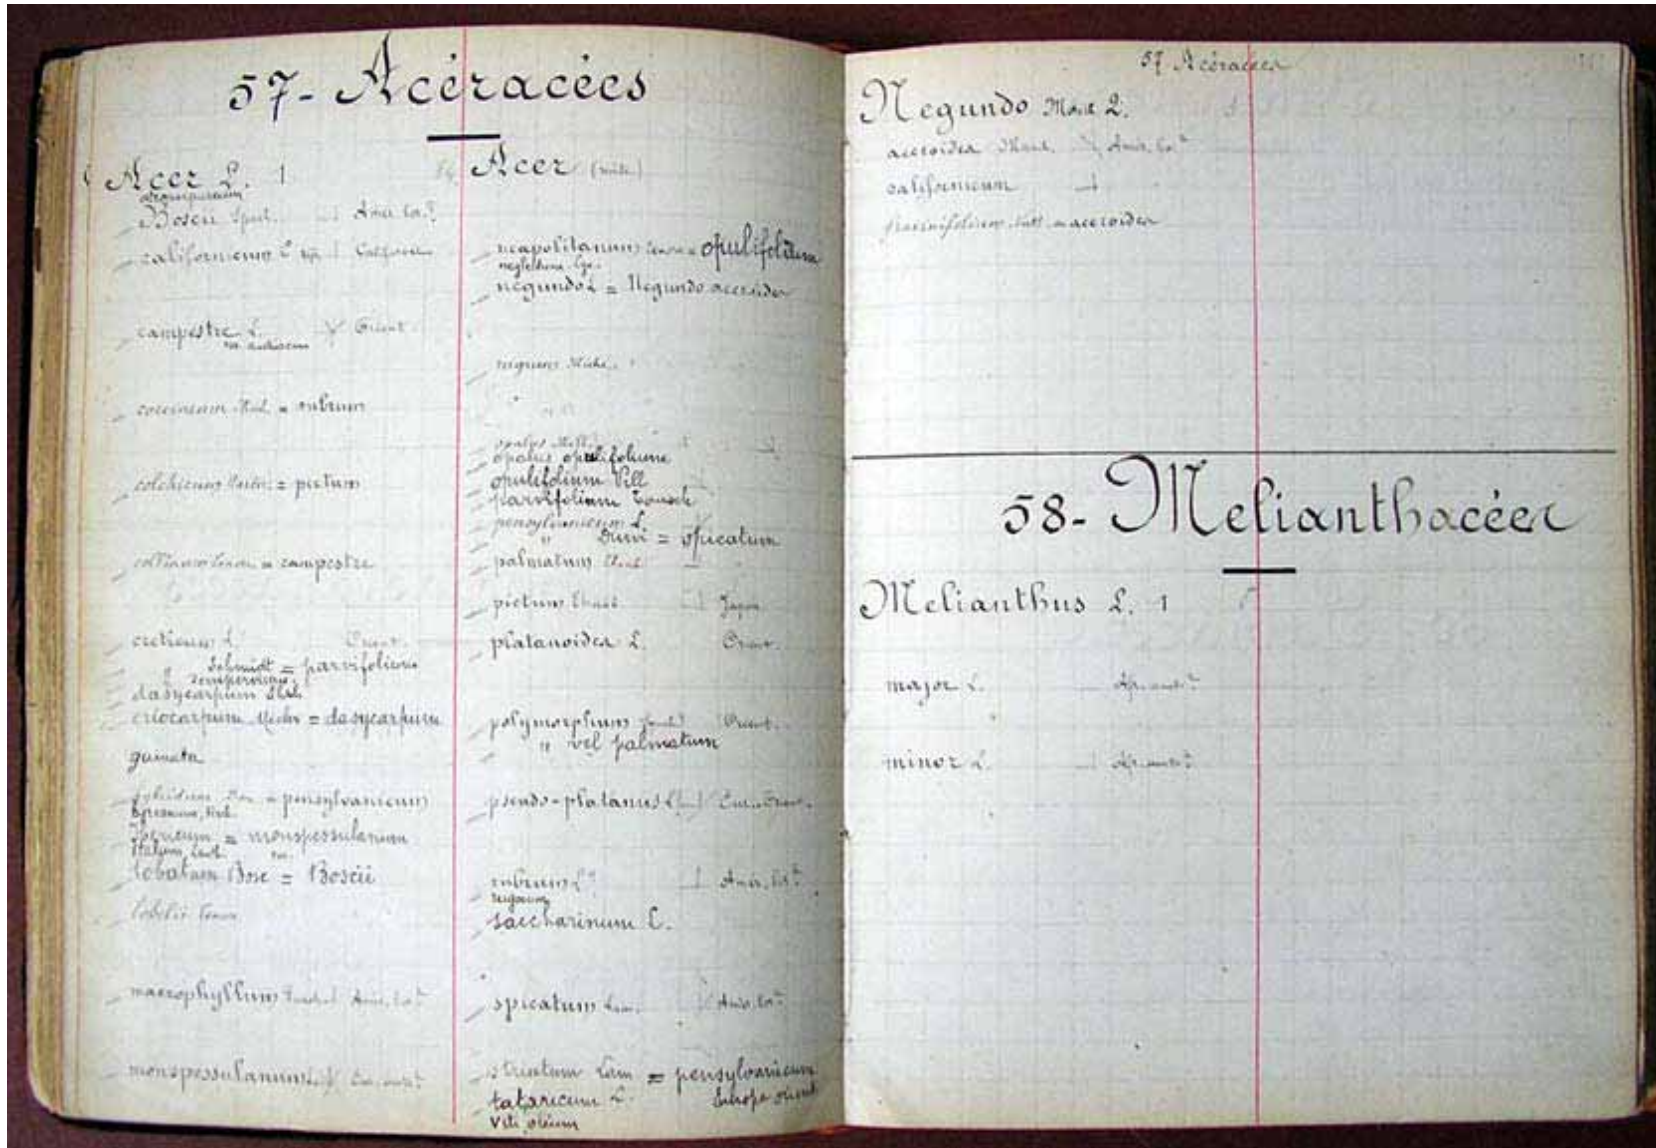 57 - Acéracées
Acer L. 1
Boscii Spect. Amér. bor.
californicum L
campestre L. Orient.
coccineum = rubrum
colchicum = pictum
collinum = campestre
creticum L. Orient.
Schmidt = parvifolium
sempervirens
dasycarpum Ehrh.
eriocarpum Michx = dasycarpum
guinata
hybridum = pensylvanicum
Ibericum = monspessulanum
lobatum Bosc = Boscii
lobelii Tenore
macrophyllum Amér. bor.
monspessulanum L.
Acer (suite)
neapolitanum Tenore = opulifolium
neglectum Lge.
negundo L = Negundo aceroides
nigrum Michx.
opalus opulifolium
opulifolium Vill
parvifolium Tausch
pensylvanicum L.
" Duroi = spicatum
palmatum
pictum Thunb Japon
platanoides L. Orient.
polymorphum Orient.
" vel palmatum
pseudo-platanus L. Eur. Orient.
rubrum L. Amér. bor.
saccharinum L.
spicatum Lam. Amér. bor.
striatum Lam = pensylvanicum
tataricum L. Europe orient
57 Acéracées
Negundo Mœnc 2.
aceroides Mœnc. Amér. bor.
californicum
fraxinifolium Nutt. = aceroides
58 - Melianthacées
Melianthus L. 1
major L. Afr. austr.
minor L. Afr. austr.